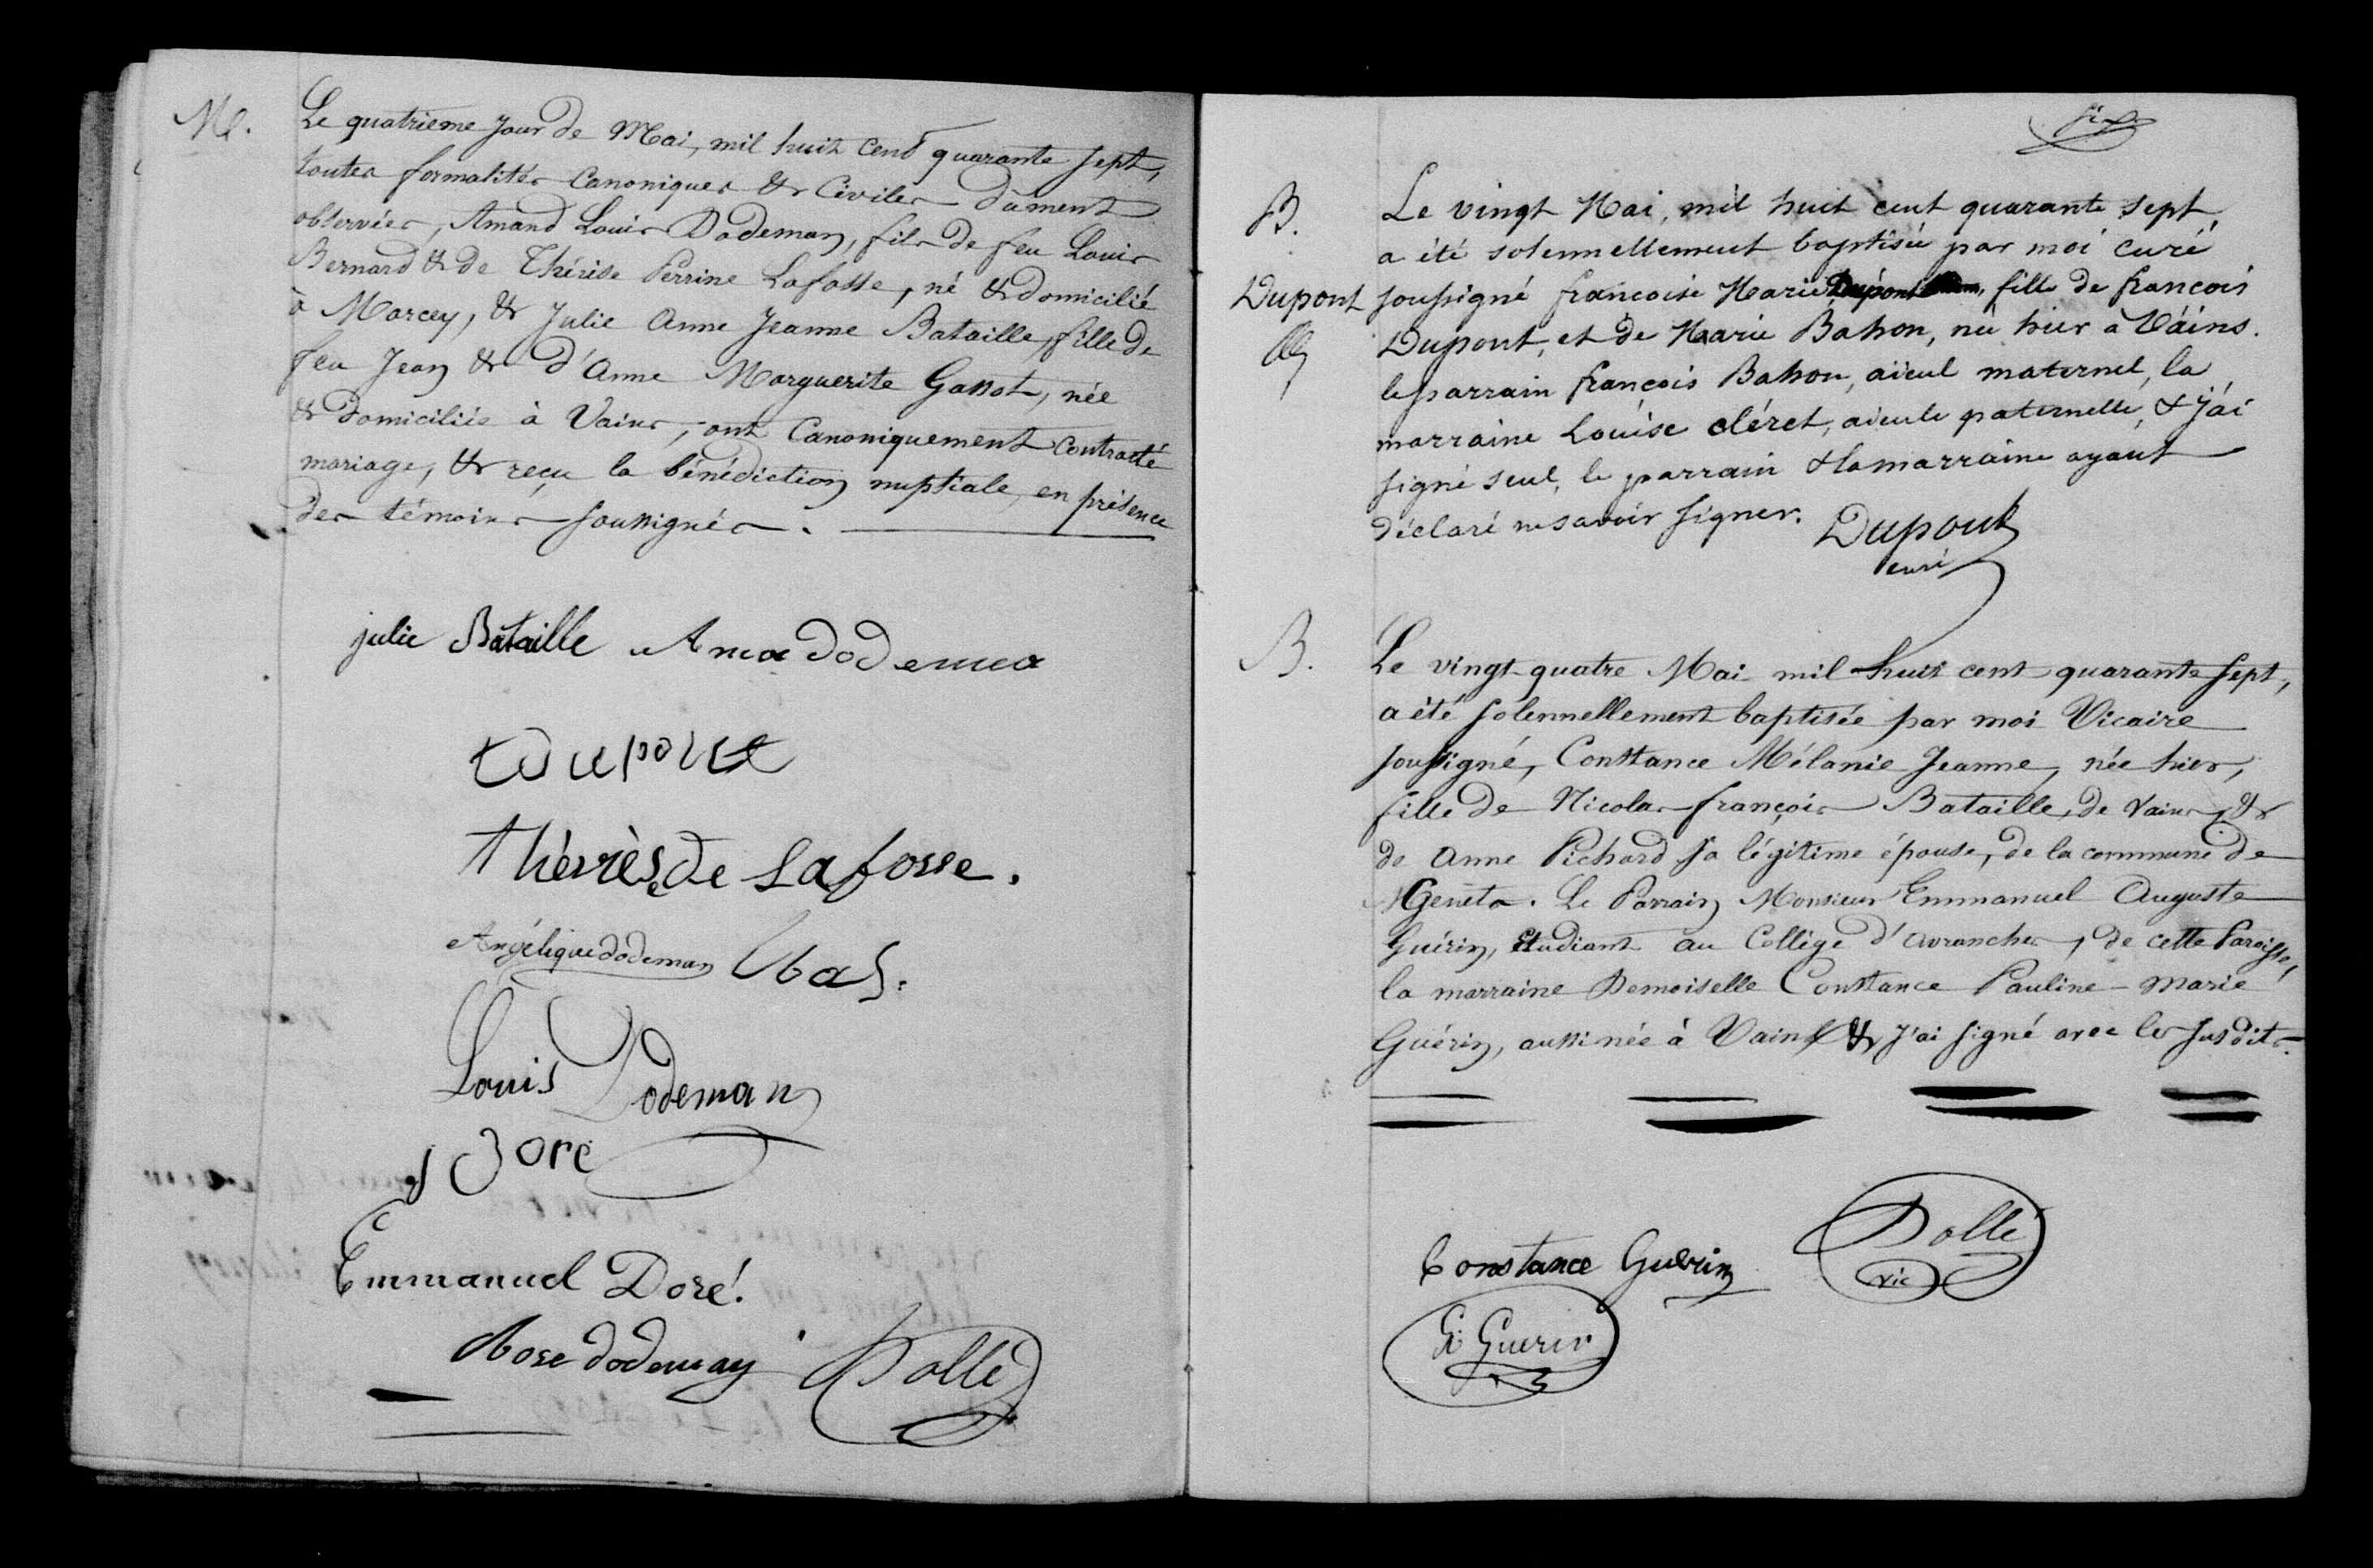 M.
Le quatrième jour de Mai, mil huit cent quarante sept,
toutes formalités Canoniques & Civiles dûment
observées, Amand Louis Dodeman, fils de feu Louis
Bernard & de Thérèse Perrine Lafosse, né & domicilié
à Marcey, & Julie Anne Jeanne Bataille, fille de
feu Jean & d'Anne Marguerite Gassot, née
& domiciliée à Vains, ont Canoniquement Contracté
mariage, & reçu la bénédiction nuptiale, en présence
des témoins soussignés.
julie Bataille Ama dodema
Dupont
thérèse De Lafosse.
Angélique dodeman Bas.
Louis Dodeman
Doré
Emmanuel Doré.
Rose dodeman Dollé
six
B.
Dupont
Le vingt Mai, mil huit cent quarante sept,
a été solennellement baptisée par moi curé
soussigné francoise Marie Dupont, fille de francois
Dupont, et de Marie Bahon, née hier à Vains.
le parrain françois Bahon, aïeul maternel, la
marraine Louise cléret, aïeule paternelle, & j'ai
signé seul, le parrain & la marraine ayant
déclaré ne savoir signer. Dupont
curé
B.
Le vingt-quatre Mai mil huit cent quarante sept,
a été solennellement baptisée par moi Vicaire
soussigné, Constance Mélanie Jeanne, née hier,
fille de Nicolas françois Bataille, de Vains, &
de Anne Pichard sa légitime épouse, de la commune de
Genêts. Le Parrain Monsieur Emmanuel Auguste
Guérin, étudiant au Collège d'avranches, de cette Paroisse,
la marraine Demoiselle Constance Pauline-Marie
Guérin, aussi née à Vains & j'ai signé avec les susdits.
Constance Guérin Dollé
vic
E Guerin